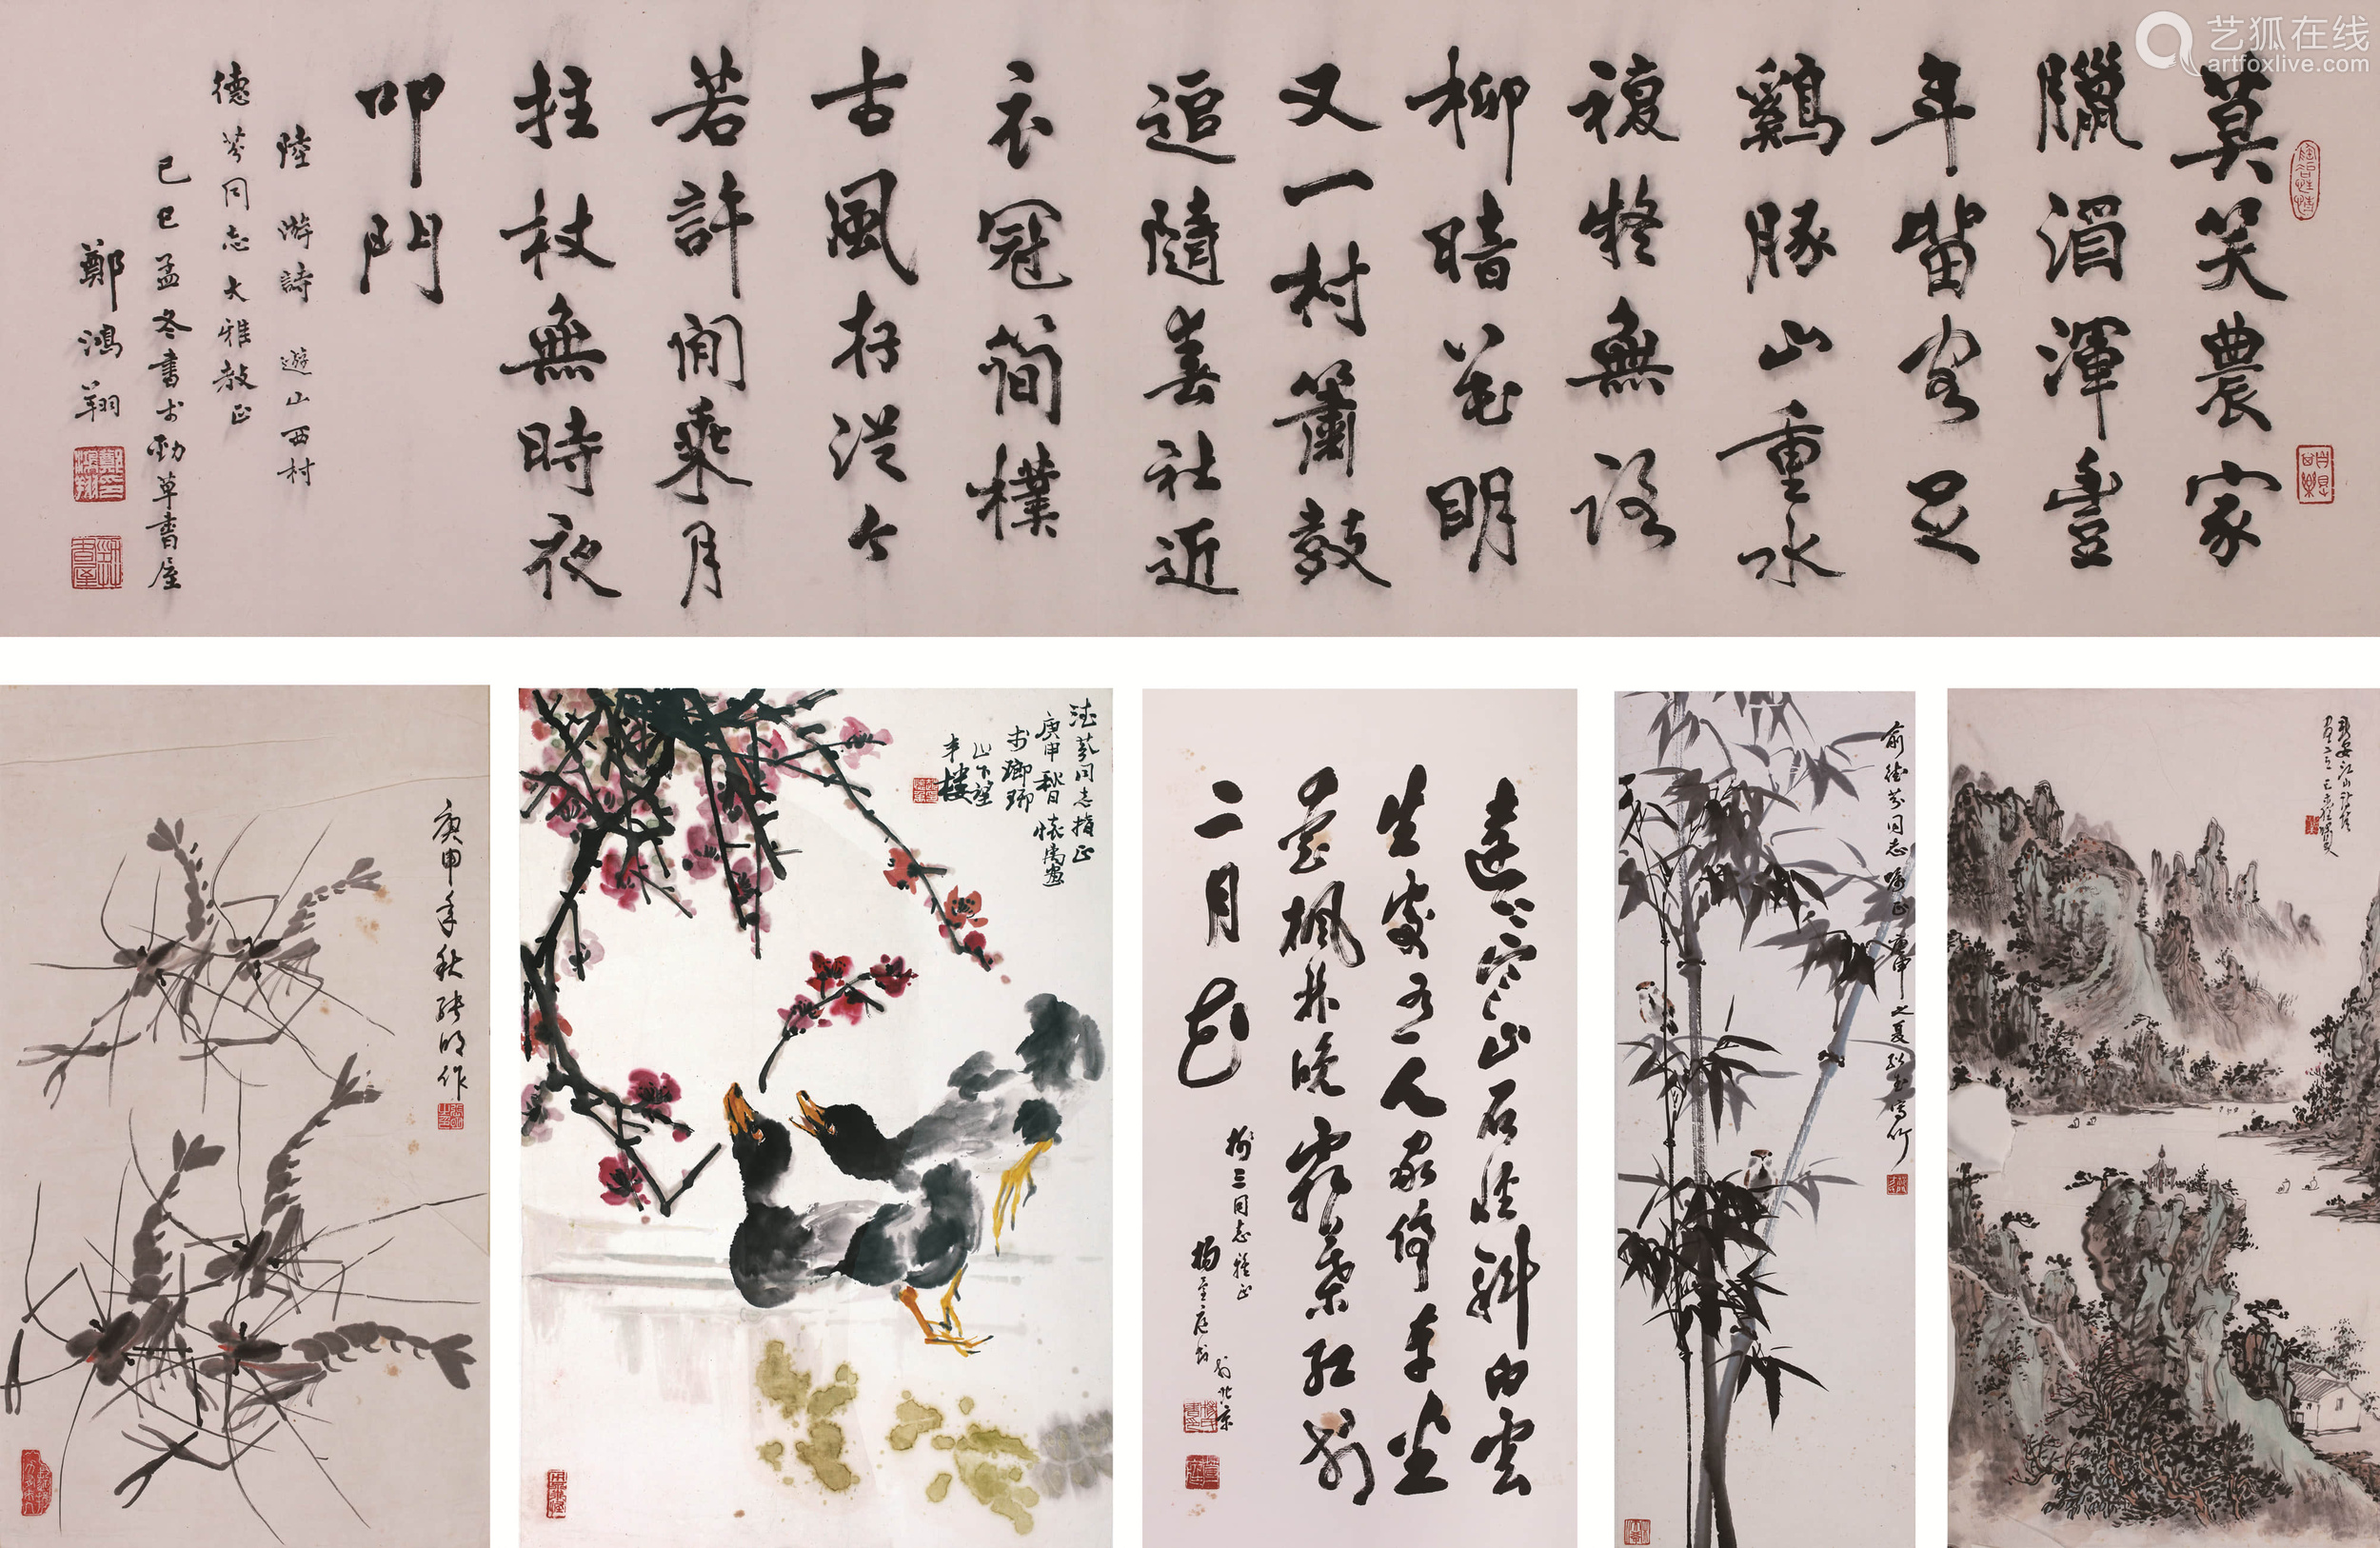 艺狐在线
artfoxlive.com
莫笑農家
臘酒渾豐
年留客足
鷄豚山重水
複疑無路
柳暗花明
又一村簫鼓
追隨春社近
衣冠簡樸
古風存從今
若許閒乘月
拄杖無時夜
叩門
陸游詩 遊山西村
德芬同志大雅教正
己巳孟冬書于勁草書屋
鄭鴻翔
庚申年秋張明作
德芬同志指正
庚申秋日懷禹畫
於瑯琊
山下望
半樓
遠上寒山石徑斜白雲
生處有人家停車坐
愛楓林晚霜葉紅於
二月花
三同志雅正
楊萱庭書於北京
俞德芬同志嘱正 庚申之夏 寫竹